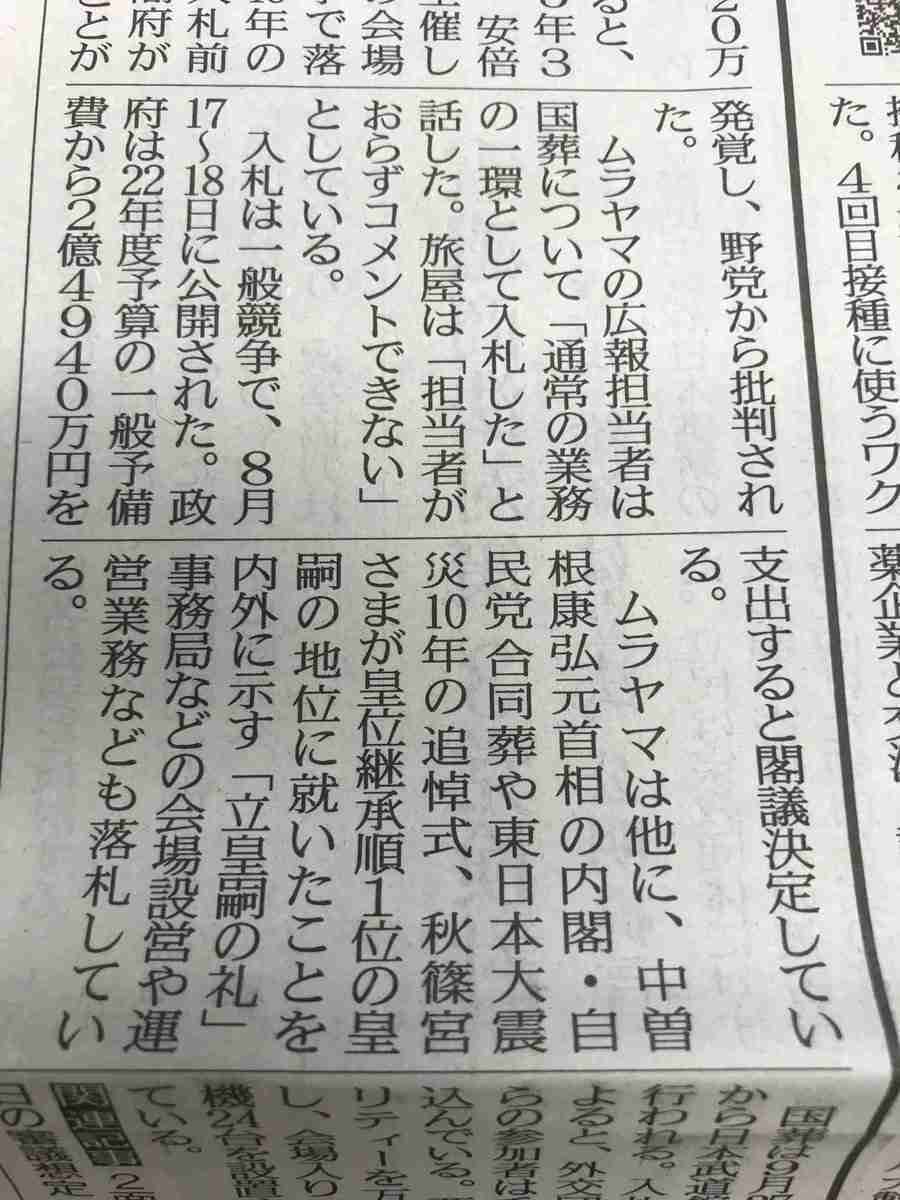 20万
ると、
5年3
安倍
主催し
の会場
で落
年の
札前
府が
ことが
発覚し、野党から批判され
た。
ムラヤマの広報担当者は
国葬について「通常の業務
の一環として入札した」と
話した。旅屋は「担当者が
おらずコメントできない」
としている。
入札は一般競争で、8月
17〜18日に公開された。政
府は22年度予算の一般予備
費から2億4940万円を
支出すると閣議決定してい
る。
ムラヤマは他に、中曽
根康弘元首相の内閣・自
民党合同葬や東日本大震
災10年の追悼式、秋篠宮
さまが皇位継承順1位の皇
嗣の地位に就いたことを
内外に示す「立皇嗣の礼」
事務局などの会場設営や運
営業務なども落札してい
る。
た。4回目接種に使うワク
薬企業と
国葬は9月
から日本武道
行われる。
よると、外交
らの参加者は
込んでいる。
リティーを万
し、会場入り
機24台を設置
ている。
関連記事
2面
日の審議想定